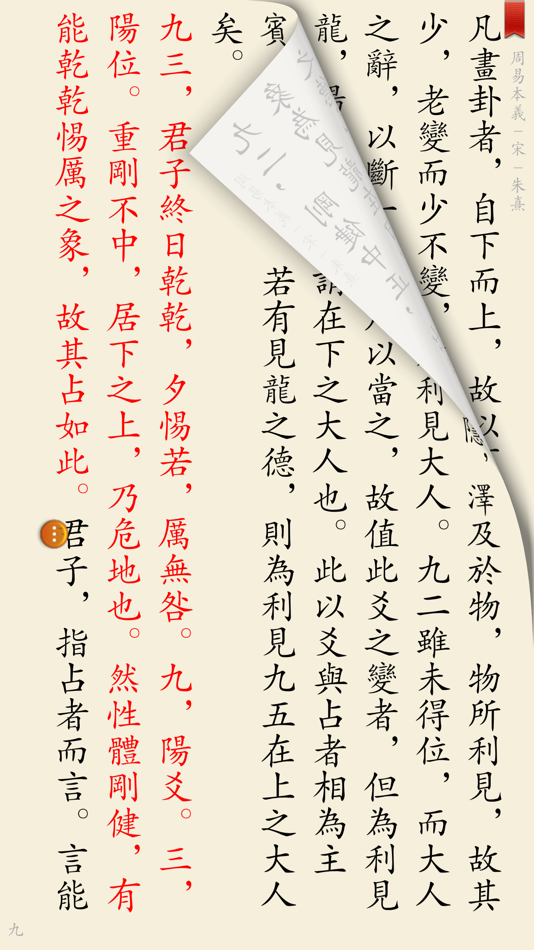 周易本義－宋－朱熹
凡畫卦者，自下而上，故以隱，澤及於物，物所利見，故其
少，老變而少不變，利見大人。九二雖未得位，而大人
之辭，以斷以當之，故值此爻之變者，但為利見
龍，謂在下之大人也。此以爻與占者相為主
賓若有見龍之德，則為利見九五在上之大人
矣。
九三，君子終日乾乾，夕惕若，厲無咎。九，陽爻。三，
陽位。重剛不中，居下之上，乃危地也。然性體剛健，有
能乾乾惕厲之象，故其占如此。君子，指占者而言。言能
九